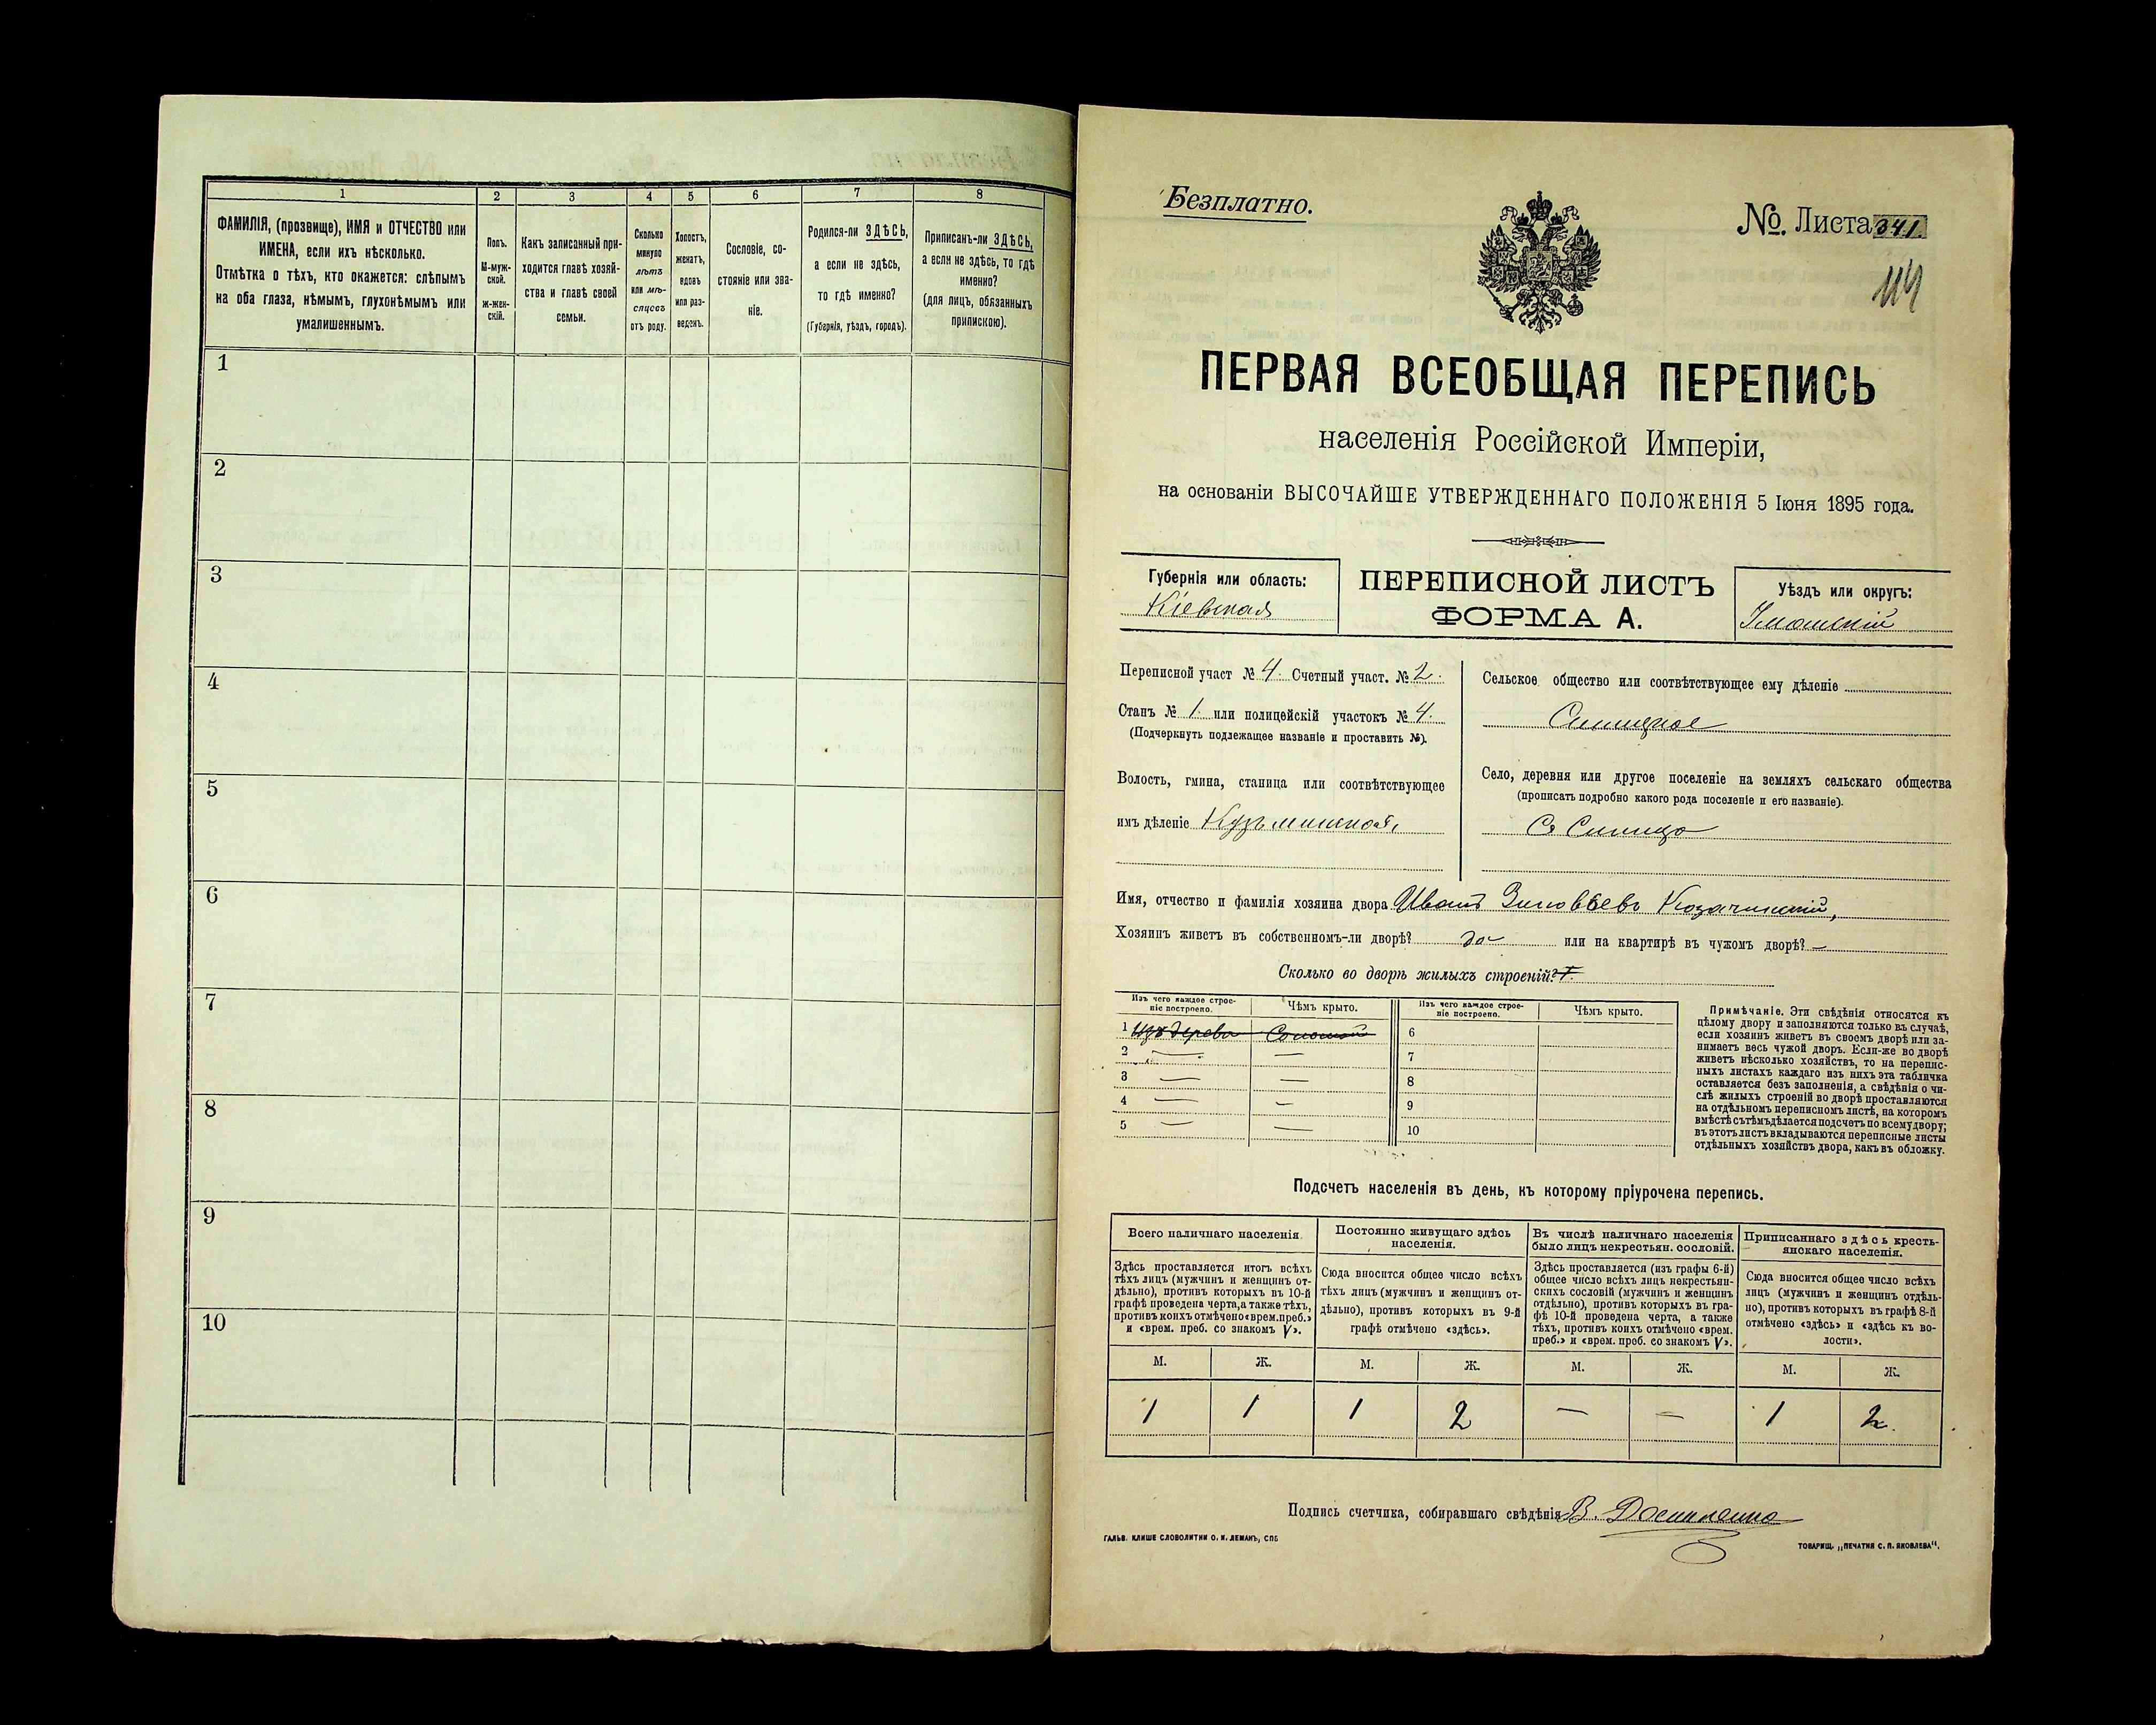 1
2
3
4
5
6
7
8
ФАМИЛІЯ, (прозвище), ИМЯ и ОТЧЕСТВО или
ИМЕНА, если ихъ нѣсколько.
Отмѣтка о тѣхъ, кто окажется: слѣпымъ
на оба глаза, нѣмымъ, глухонѣмымъ или
умалишеннымъ.
Полъ.
М-муж-
ской.
ж-жен-
скій.
Какъ записанный при-
ходится главѣ хозяй-
ства и главѣ своей
семьи.
Сколько
минуло
лѣтъ
или мѣ-
сяцевъ
отъ роду.
Холостъ,
женатъ,
вдовъ
или раз-
веденъ.
Сословіе, со-
стояніе или зва-
ніе.
Родился-ли ЗДѢСЬ,
а если не здѣсь,
то гдѣ именно?
(Губернія, уѣздъ, городъ).
Приписанъ-ли ЗДѢСЬ,
а если не здѣсь, то гдѣ
именно?
(для лицъ, обязанныхъ
припискою).
1
2
3
4
5
6
7
8
9
10
Безплатно.
№ Листа 341.
ПЕРВАЯ ВСЕОБЩАЯ ПЕРЕПИСЬ
населенія Россійской Имперіи,
на основаніи ВЫСОЧАЙШЕ УТВЕРЖДЕННАГО ПОЛОЖЕНІЯ 5 Іюня 1895 года.
Губернія или область:
Кіевская
ПЕРЕПИСНОЙ ЛИСТЪ
ФОРМА А.
Уѣздъ или округъ:
Уманскій
Переписной участ № 4. Счетный участ. № 2.
Станъ № 1. или полицейскій участокъ № 4.
(Подчеркнуть подлежащее названіе и проставить №).
Волость, гмина, станица или соотвѣтствующее
имъ дѣленіе Кузьминская,
Сельское общество или соотвѣтствующее ему дѣленіе
Синицкое
Село, деревня или другое поселеніе на земляхъ сельскаго общества
(прописать подробно какого рода поселеніе и его названіе).
С. Синица
Имя, отчество и фамилія хозяина двора Иванъ Зиновьевъ Козачинскій,
Хозяинъ живетъ въ собственномъ-ли дворѣ? да или на квартирѣ въ чужомъ дворѣ? —
Сколько во дворѣ жилыхъ строеній?
Изъ чего каждое строе-
ніе построено.
Чѣмъ крыто.
Изъ чего каждое строе-
ніе построено.
Чѣмъ крыто.
1 Изъ дерева Соломой
2 — —
3 — —
4 — —
5 — —
6
7
8
9
10
Примѣчаніе. Эти свѣдѣнія относятся къ
цѣлому двору и заполняются только въ случаѣ,
если хозяинъ живетъ въ своемъ дворѣ или за-
нимаетъ весь чужой дворъ. Если-же во дворѣ
живетъ нѣсколько хозяйствъ, то на перепис-
ныхъ листахъ каждаго изъ нихъ эта табличка
оставляется безъ заполненія, а свѣдѣнія о чи-
слѣ жилыхъ строеній во дворѣ проставляются
на отдѣльномъ переписномъ листѣ, на которомъ
вмѣстѣ съ тѣмъ дѣлается подсчетъ по всему двору;
въ этотъ листъ вкладываются переписные листы
отдѣльныхъ хозяйствъ двора, какъ въ обложку.
Подсчетъ населенія въ день, къ которому пріурочена перепись.
Всего наличнаго населенія.
Здѣсь проставляется итогъ всѣхъ
тѣхъ лицъ (мужчинъ и женщинъ от-
дѣльно), противъ которыхъ въ 10-й
графѣ проведена черта, а также тѣхъ,
противъ коихъ отмѣчено «врем. преб.»
и «врем. преб. со знакомъ V».
Постоянно живущаго здѣсь
населенія.
Сюда вносится общее число всѣхъ
тѣхъ лицъ (мужчинъ и женщинъ от-
дѣльно), противъ которыхъ въ 9-й
графѣ отмѣчено «здѣсь».
Въ числѣ наличнаго населенія
было лицъ некрестьян. сословій.
Здѣсь проставляется (изъ графы 6-й)
общее число всѣхъ лицъ некрестьян-
скихъ сословій (мужчинъ и женщинъ
отдѣльно), противъ которыхъ въ гра-
фѣ 10-й проведена черта, а также
тѣхъ, противъ коихъ отмѣчено «врем.
преб.» и «врем. преб. со знакомъ V».
Приписаннаго здѣсь кресть-
янскаго населенія.
Сюда вносится общее число всѣхъ
лицъ (мужчинъ и женщинъ отдѣль-
но), противъ которыхъ въ графѣ 8-й
отмѣчено «здѣсь» и «здѣсь къ во-
лости».
М. Ж. М. Ж. М. Ж. М. Ж.
1 1 1 2 — — 1 2.
Подпись счетчика, собиравшаго свѣдѣнія В.
ГАЛЬВ. КЛИШЕ СЛОВОЛИТНИ О. И. ЛЕМАНЪ, СПБ
ТОВАРИЩ. „ПЕЧАТНЯ С. П. ЯКОВЛЕВА".